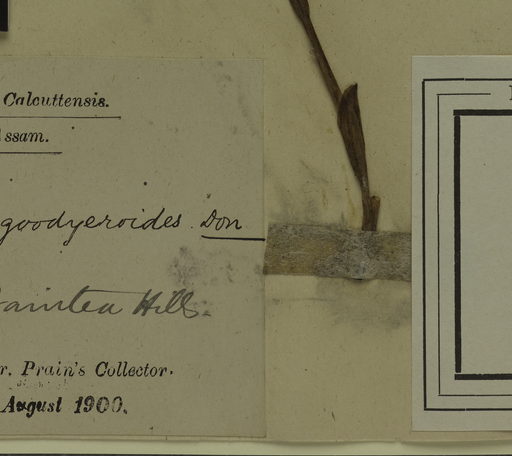 Calcuttensis.
ssam.
goodyeroides. Don
Hills.
r. Prain's Collector.
August 1900.